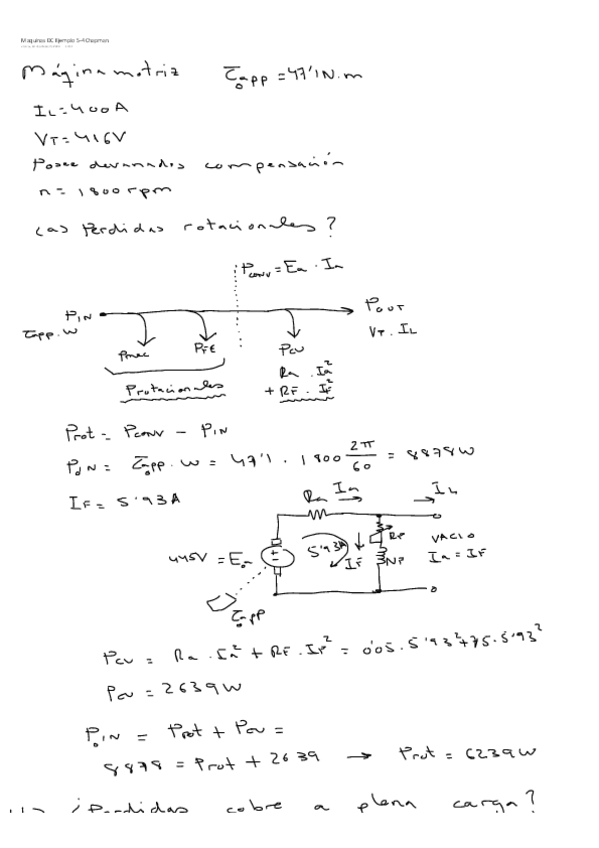 Maquinas DC Ejemplo 5-4 Chapman
Máquina motriz τapp = 47'1 N.m
IL = 400A
VT = 416V
Posee devanados compensación
n = 1800 rpm
Las Perdidas rotacionales?
Pconv = Ea · Ia
PIN POUT
τapp·w VT · IL
Pmec PFE PCU
Ra · Ia²
Protacionales + RF · IF²
Prot = Pconv - PIN
PIN = τapp · w = 47'1 · 1800 2π/60 = 8878W
IF = 5'93A
Ra Ia IL
445V = Ea 5'93A IF RF NF VACIO
Ia = IF
τapp
Pcu = Ra · Ia² + RF · IF² = 0'05 · 5'93² + 75 · 5'93²
Pcu = 2639W
PIN = Prot + Pcu =
8878 = Prot + 2639 → Prot = 6239W
¿Perdidas cobre a plena carga?